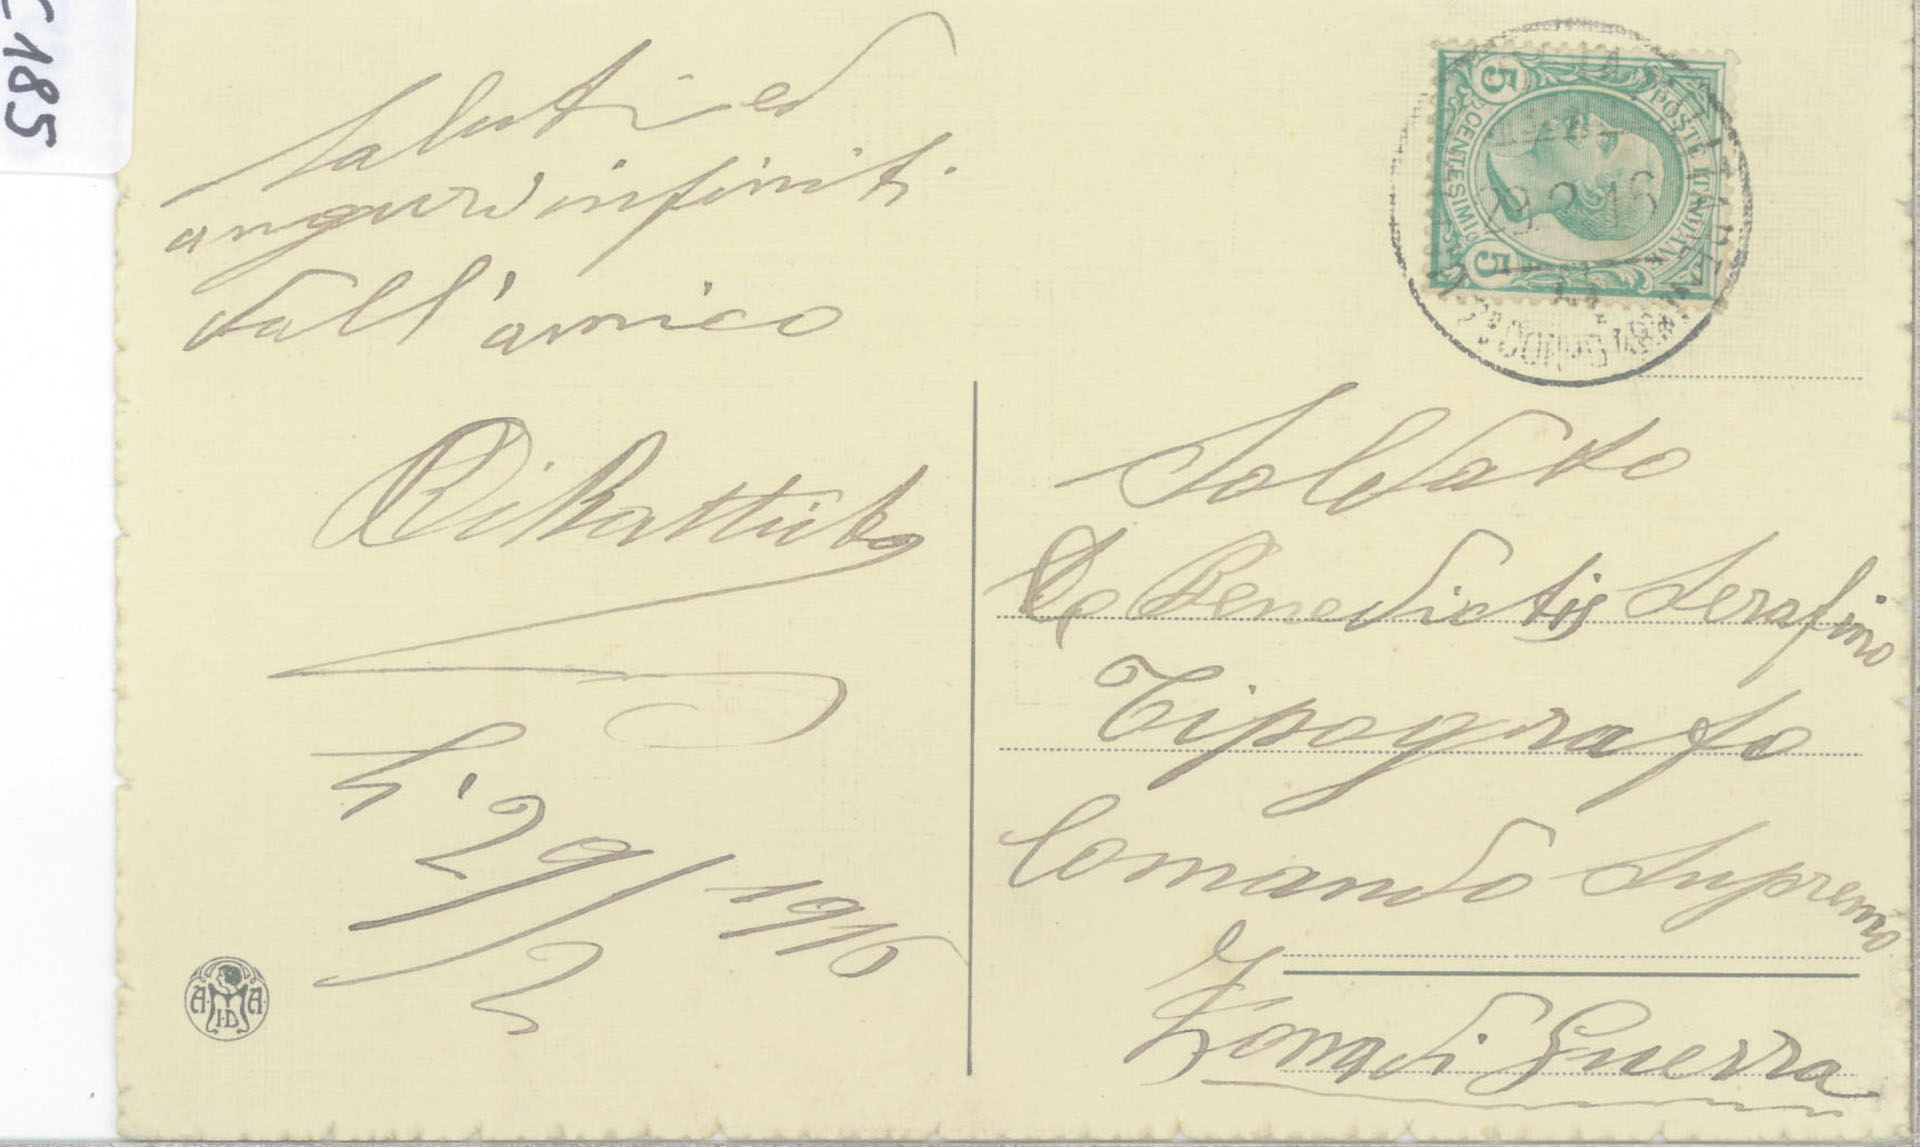 C185
Saluti ed
auguri infiniti
dall'amico
Li 29/2 1916
POSTE ITALIANE
CENTESIMI
5
5
29.2.16
Soldato
De Benedictis Serafino
Tipografo
Comando Supremo
Zona di Guerra
A M A
I.D